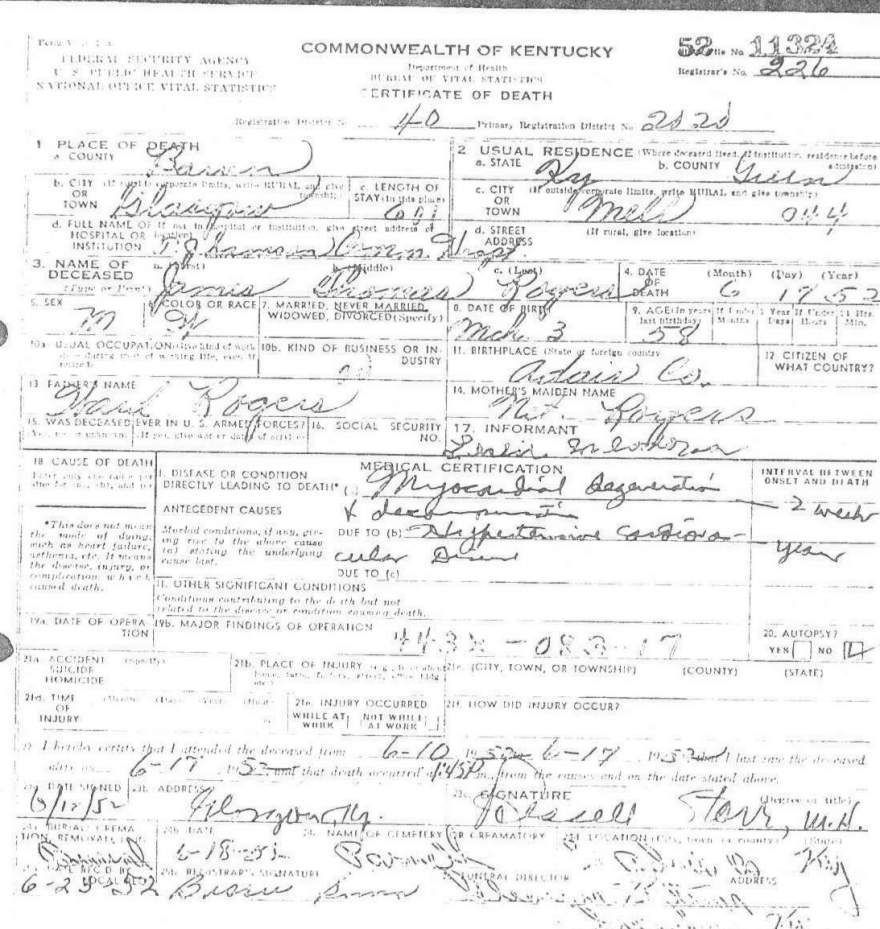 FEDERAL SECURITY AGENCY
U. S. PUBLIC HEALTH SERVICE
NATIONAL OFFICE VITAL STATISTICS
COMMONWEALTH OF KENTUCKY
Department of Health
BUREAU OF VITAL STATISTICS
CERTIFICATE OF DEATH
52 File No 11324
Registrar's No. 226
Registration District No. 40 Primary Registration District No. 2020
1 PLACE OF DEATH
a. COUNTY Barren
2 USUAL RESIDENCE (Where deceased lived. If institution, residence before admission)
a. STATE Ky b. COUNTY Green
b. CITY OR TOWN (If outside corporate limits, write RURAL and give township) Glasgow
c. LENGTH OF STAY (in this place)
c. CITY OR TOWN (If outside corporate limits, write RURAL and give township) Mell 044
d. FULL NAME OF HOSPITAL OR INSTITUTION (If not in hospital or institution, give street address or location) T. J. Samson Comm. Hosp.
d. STREET ADDRESS (If rural, give location)
3. NAME OF DECEASED (Type or Print)
a. (First) James b. (Middle) Thomas c. (Last) Rogers
4. DATE OF DEATH (Month) (Day) (Year) 6 17 52
5. SEX M
6. COLOR OR RACE W
7. MARRIED, NEVER MARRIED, WIDOWED, DIVORCED (Specify)
8. DATE OF BIRTH Mch. 3
9. AGE (In years last birthday) 58 If Under 1 Year Months Days If Under 24 Hrs. Hours Min.
10a. USUAL OCCUPATION (Give kind of work done during most of working life, even if retired)
10b. KIND OF BUSINESS OR INDUSTRY
11. BIRTHPLACE (State or foreign country) Adair Co.
12 CITIZEN OF WHAT COUNTRY?
13 FATHER'S NAME Rogers
14. MOTHER'S MAIDEN NAME Rogers
15. WAS DECEASED EVER IN U. S. ARMED FORCES? (Yes, no, or unknown) (If yes, give war or dates of service)
16. SOCIAL SECURITY NO.
17. INFORMANT
18 CAUSE OF DEATH
Enter only one cause per line for (a), (b), and (c)
MEDICAL CERTIFICATION
INTERVAL BETWEEN ONSET AND DEATH
I. DISEASE OR CONDITION DIRECTLY LEADING TO DEATH* (a) Myocardial degeneration & decompensation 2 week
*This does not mean the mode of dying, such as heart failure, asthenia, etc. It means the disease, injury, or complication which caused death.
ANTECEDENT CAUSES
Morbid conditions, if any, giving rise to the above cause (a) stating the underlying cause last.
DUE TO (b) Hypertensive Cardiovascular Disease year
DUE TO (c)
II. OTHER SIGNIFICANT CONDITIONS
Conditions contributing to the death but not related to the disease or condition causing death.
19a. DATE OF OPERATION
19b. MAJOR FINDINGS OF OPERATION
443X-083-17
20. AUTOPSY?
YES NO
21a. ACCIDENT SUICIDE HOMICIDE (Specify)
21b. PLACE OF INJURY (e.g., in or about home, farm, factory, street, office bldg., etc.)
21c. (CITY, TOWN, OR TOWNSHIP) (COUNTY) (STATE)
21d. TIME OF INJURY (Month) (Day) (Year) (Hour)
21e. INJURY OCCURRED
WHILE AT WORK NOT WHILE AT WORK
21f. HOW DID INJURY OCCUR?
22. I hereby certify that I attended the deceased from 6-10 1952 6-17 1952 that I last saw the deceased
alive on 6-17 1952 and that death occurred at 1:45P m., from the causes and on the date stated above.
23a. DATE SIGNED 6/18/52
23b. ADDRESS Glasgow, Ky.
23c. SIGNATURE (Degree or title) Starr, M.D.
24a. BURIAL, CREMATION, REMOVAL
24b. DATE
24c. NAME OF CEMETERY OR CREMATORY
24d. LOCATION (City, town, or county) (State)
DATE REC'D BY LOCAL REG. 6-23-52
REGISTRAR'S SIGNATURE
FUNERAL DIRECTOR ADDRESS